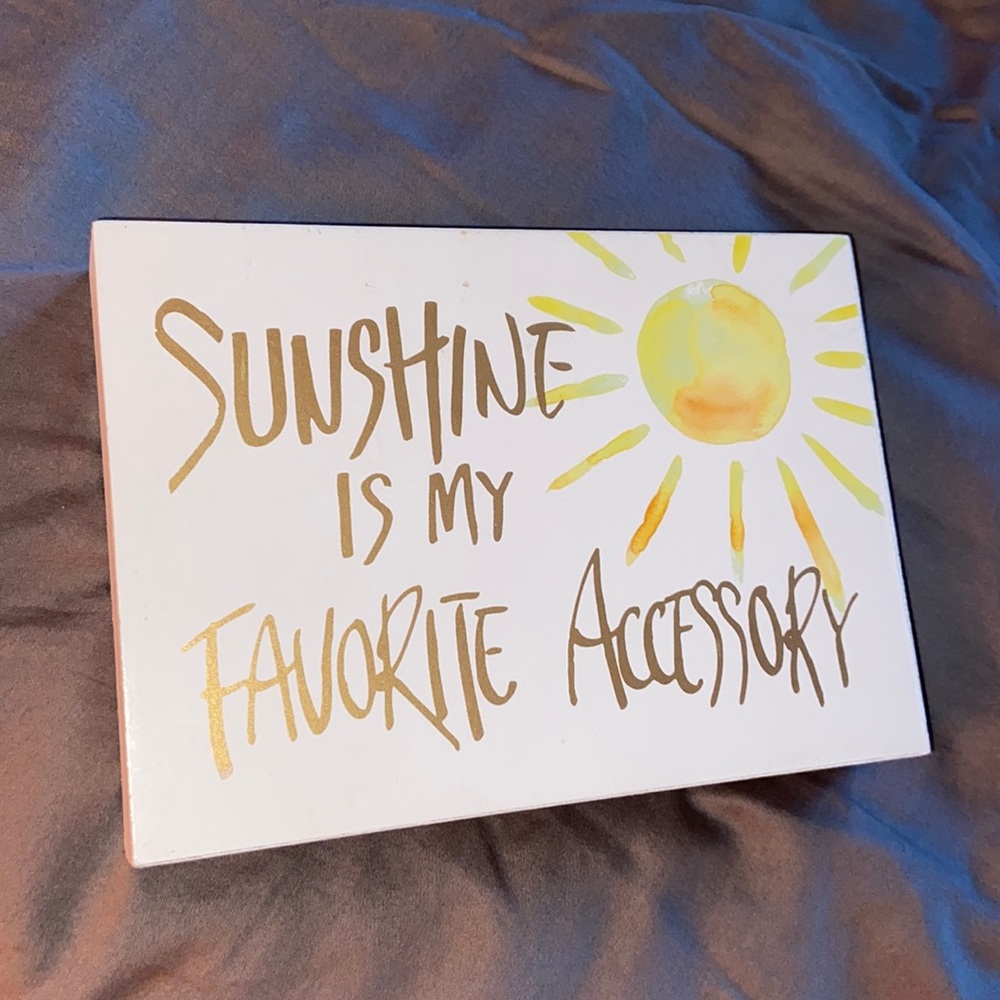 SUNSHINE
IS MY
FAVORITE ACCESSORY